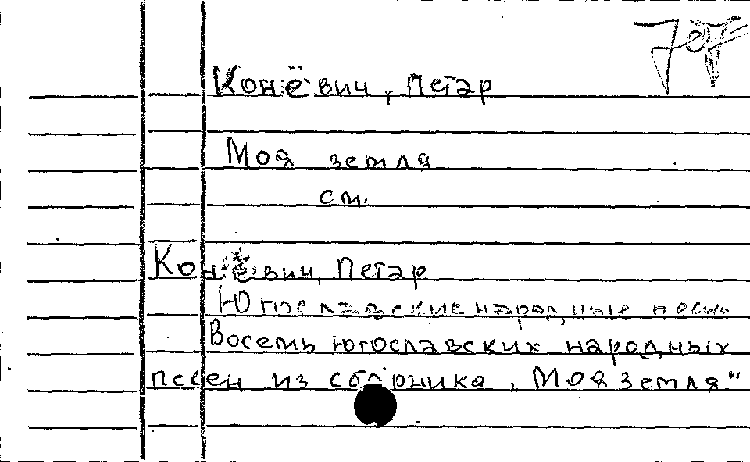 Конёвич, Петар
Моя земля
см.
Конёвич, Петар
Югославские народные песни
Восемь югославских народных
песен из сборника „Моя земля"